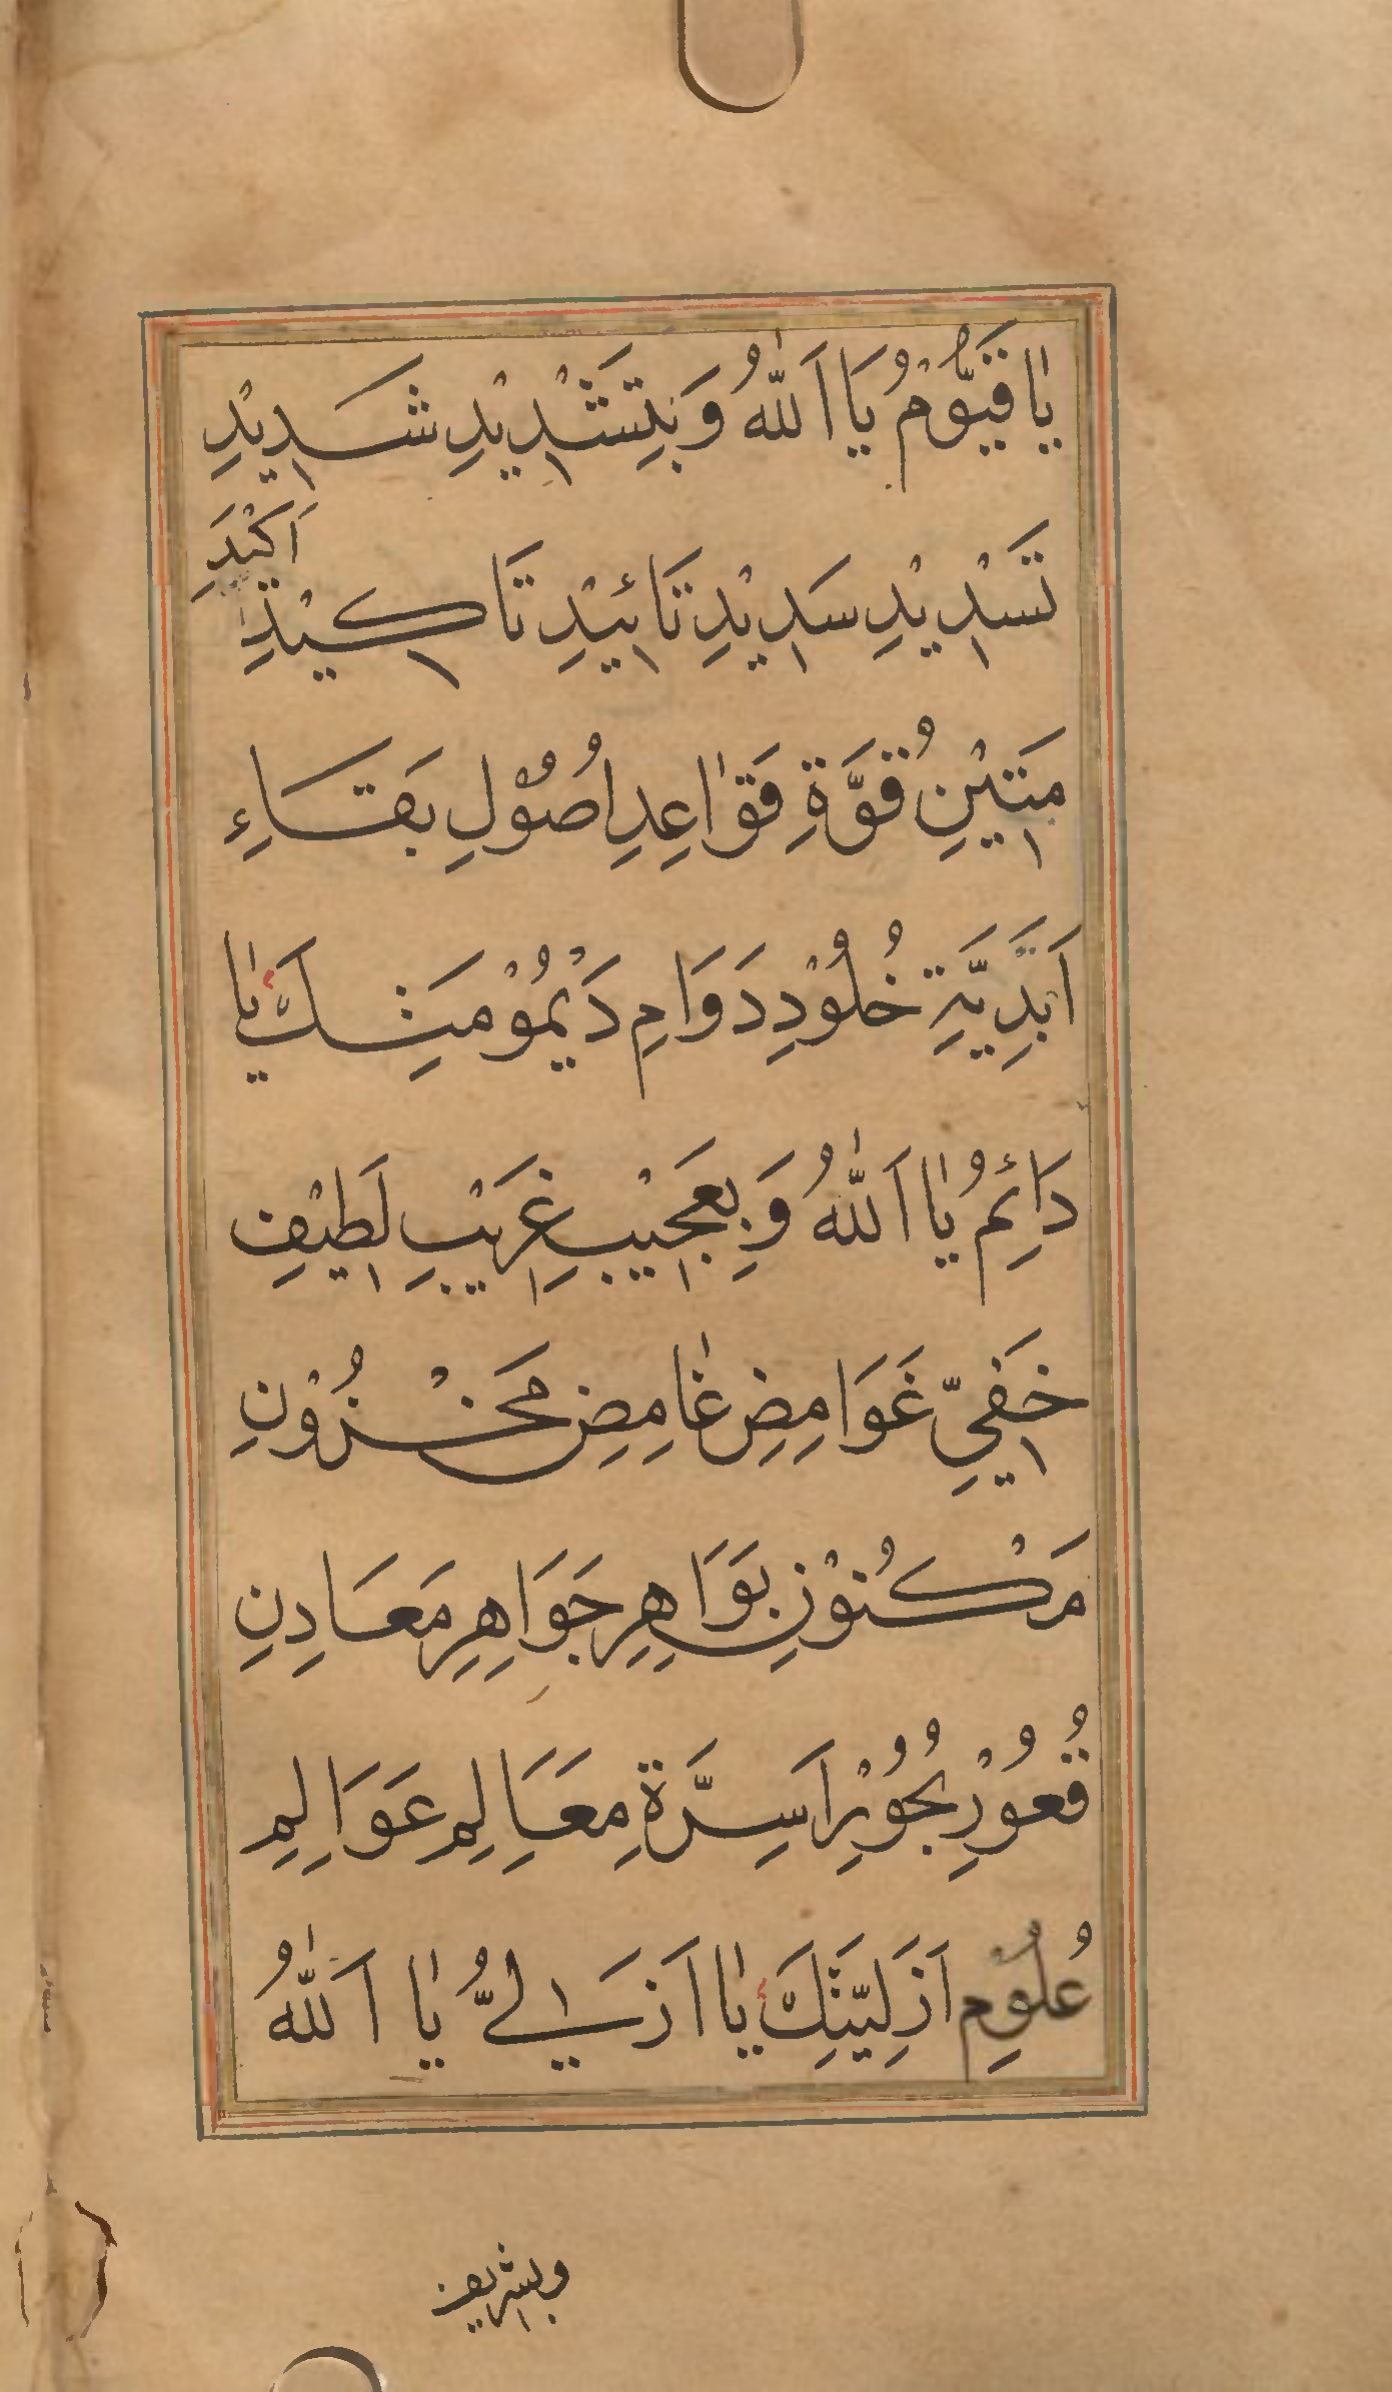 يٰا قَيُّوْمُ يَا اَللّٰهُ وَبِتَشْدِيْدِ شَدِيْدِ
اَكْيَدِ
تَسْدِيْدِ سَدِيْدِ تَائِيْدِ تَاكِيْدِ
مَتِيْنِ قُوَّةِ قَوٰاعِدِ اُصُوْلِ بَقَاءِ
اَبَدِيَّةِ خُلُوْدِ دَوَامِ دَيْمُوْمَتِكَ يٰا
دَائِمُ يٰا اَللّٰهُ وَبِعَجِيْبِ غَرِيْبِ لَطِيْفِ
خَفِيِّ غَوَامِضِ غٰامِضِ مَخْزُوْنِ
مَكْنُوْنِ بَوَاهِرِ جَوَاهِرِ مَعَادِنِ
قُعُوْرِ بُحُوْرِ اَسِرَّةِ مَعَالِمِ عَوَالِمِ
عُلُوْمِ اَزَلِيَّتِكَ يٰا اَزَلِيُّ يٰا اَللّٰهُ
وبشريف